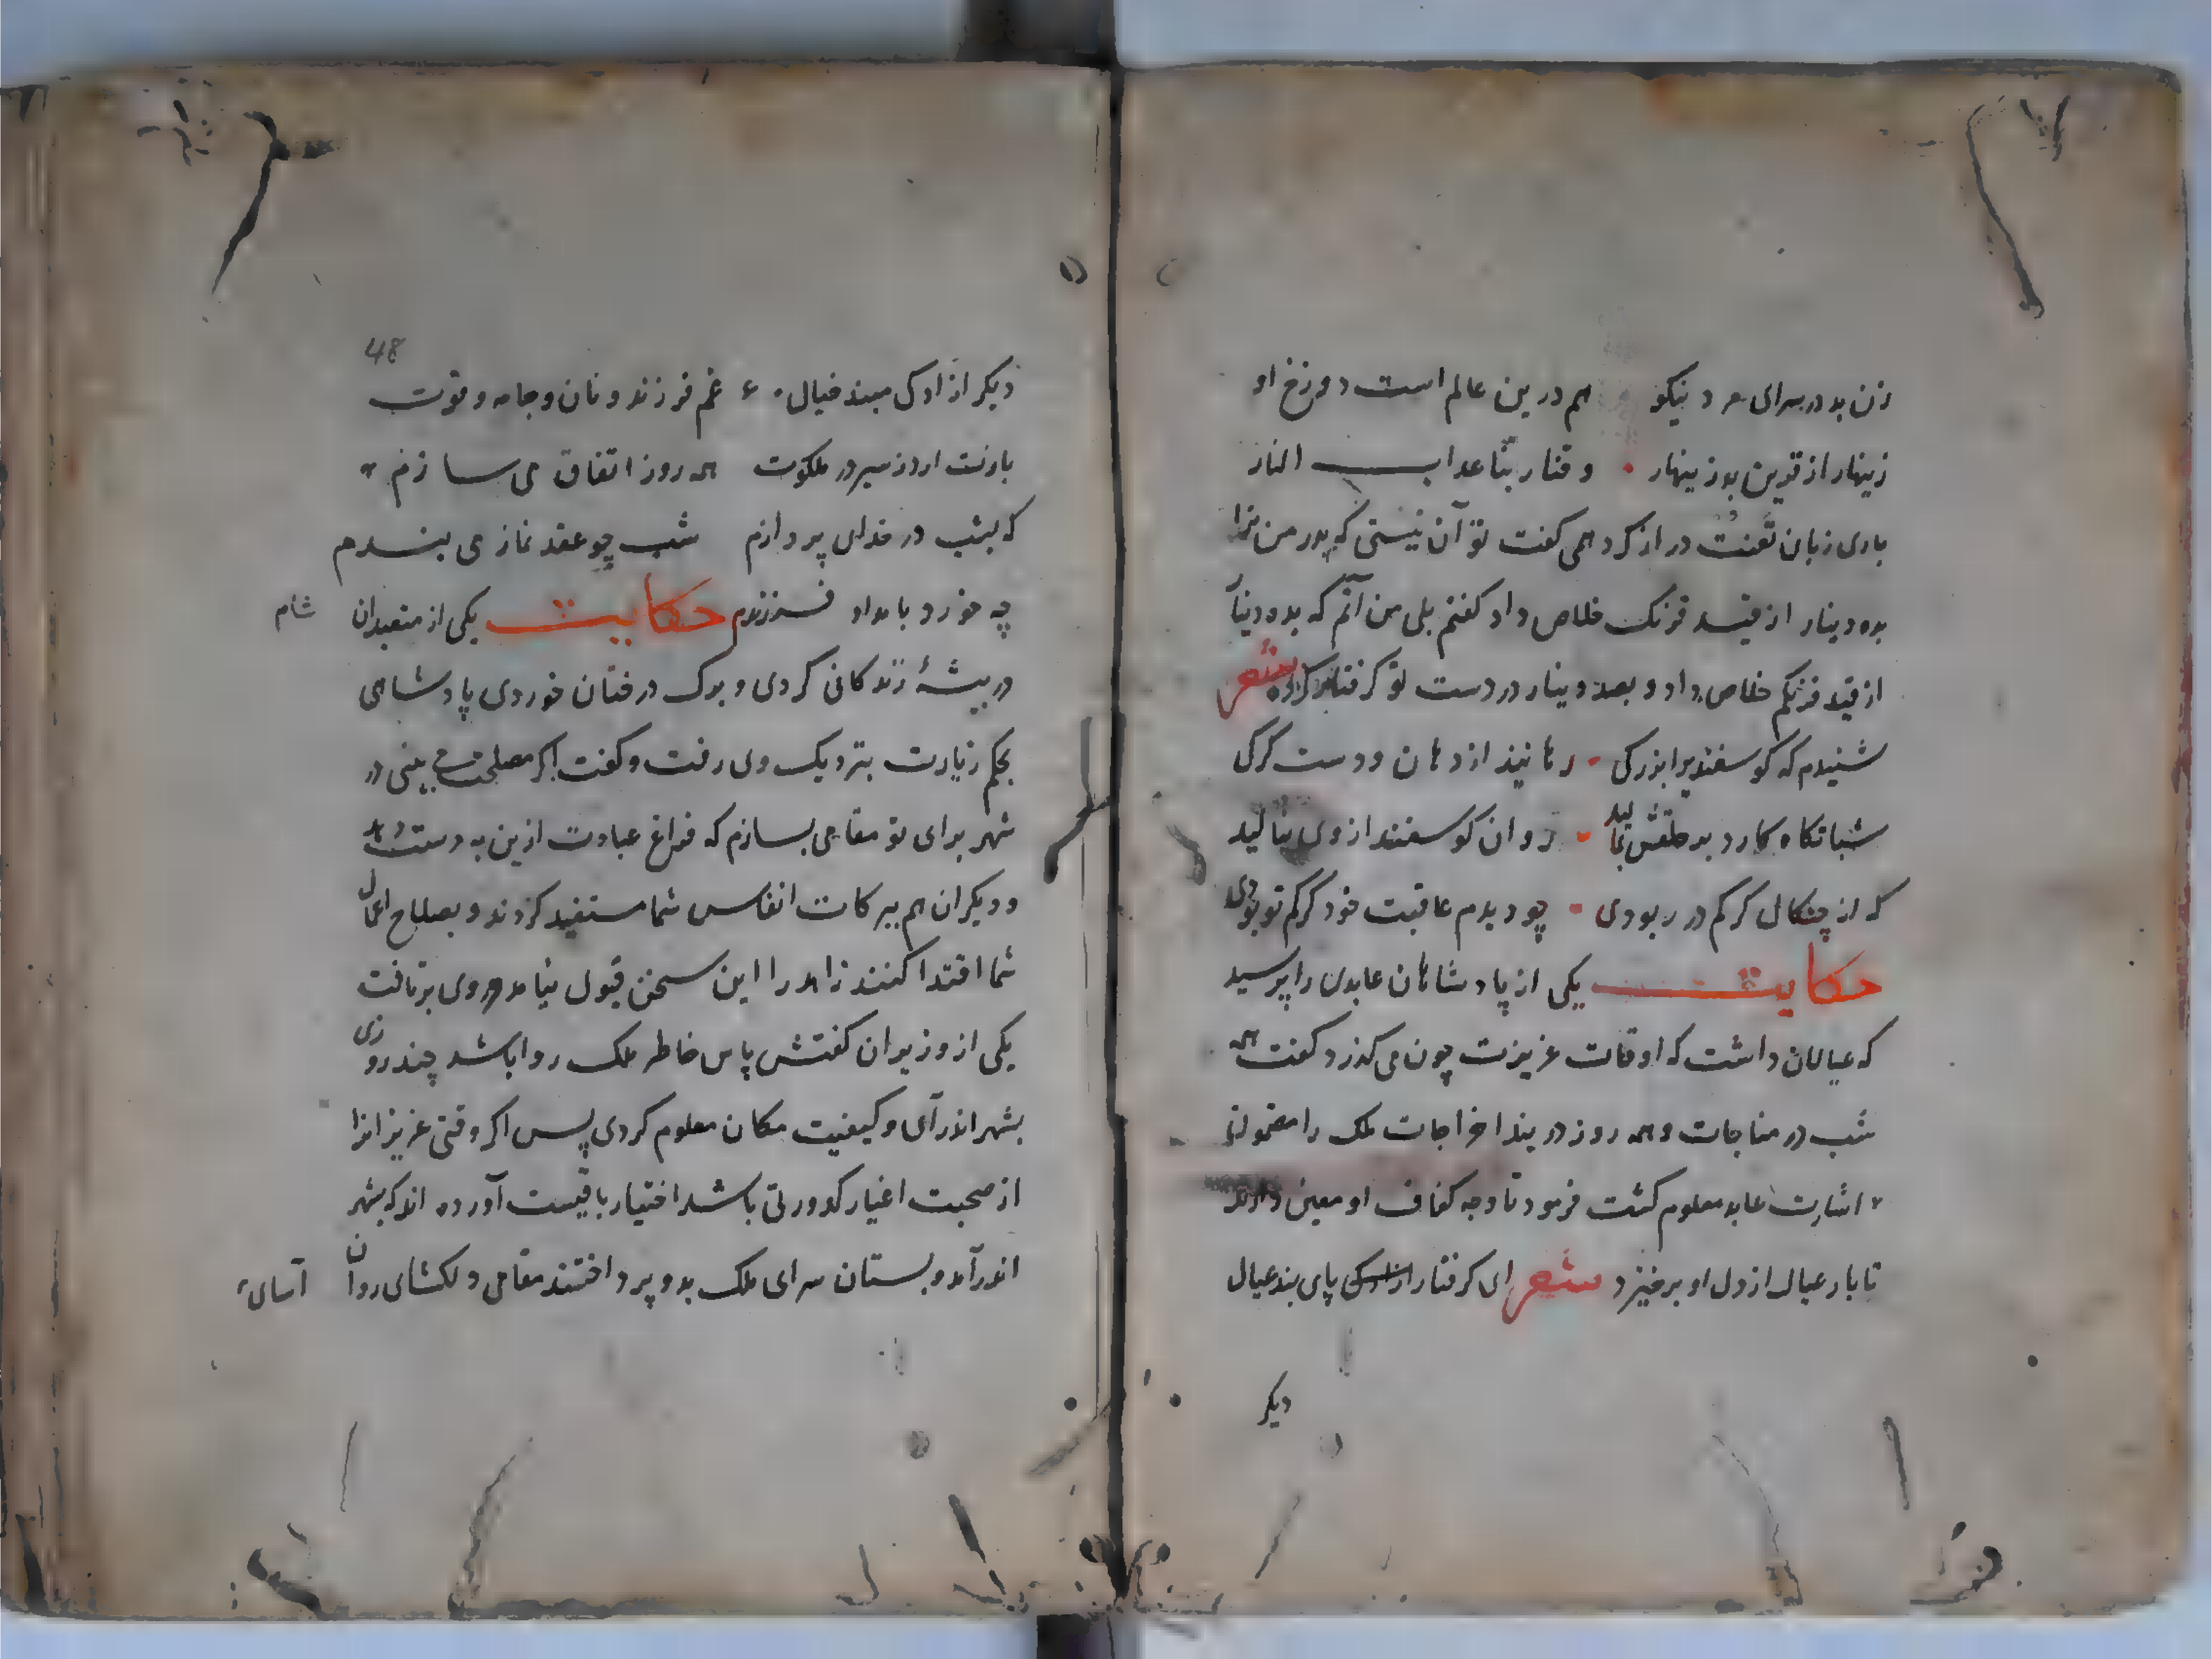 زن بد در سرای مرد نیکو هم درین عالم است دوزخ او
زینهار از قرین بد زینهار وقنا ربنا عداب النار
باری زبان تعنت دراز کرد همی کفت تو آن نیستی که پدر من ترا
بده دینار از قید فرنک خلاص داد کفتم بلی من آنم که بده دینار
از قید فرنکم خلاص داد و بصد دینار در دست تو کرفتار کرده شعر
شنیدم که کوسفندیرا بزرکی رهانید از دهان و دست کرکی
شبانکاه کارد بر حلقش بمالید روان کوسفند از وی بنالید
که از چنکال کرکم در ربودی چو دیدم عاقبت خود کرکم تو بودی
حکایت یکی از پادشاهان عابدی را پرسید
که عیالان داشت که اوقات عزیزت چون می کذرد کفت همه
شب در مناجات و همه روز در بند اخراجات ملک را مضمون
اشارت عابد معلوم کشت فرمود تا وجه کفاف او معین دارند
تا بار عیال از دل او برخیزد شعر ای کرفتار پای بند عیال
دیکر
48
دیکر ازادکی مبند خیال غم فرزند و نان و جامه و قوت
بازت ارد ز سیر در ملکوت همه روز اتفاق می سازم
که بشب در خدای پردازم شب چو عقد نماز می بندم
چه خورد بامداد فرزندم حکایت یکی از متعبدان شام
در بیشهٔ زندکانی کردی و برک درختان خوردی پادشاهی
بحکم زیارت بنزدیک وی رفت و کفت اکر مصلحت بینی در
شهر برای تو مقامی بسازم که فراغ عبادت ازین به دست دهد
و دیکران هم ببرکات انفاس شما مستفید کردند و بصلاح اعمال
شما اقتدا کنند زاهد را این سخن قبول نیامد و روی برتافت
یکی از وزیران کفتش پاس خاطر ملک روا باشد چند روزی
بشهر اندر آی و کیفیت مکان معلوم کردی پس اکر وقتی عزیزانرا
از صحبت اغیار کدورتی باشد اختیار باقیست آورده اند که بشهر
اندر آمد و بستان سرای ملک بدو پرداختند مقامی دلکشای روان آسای